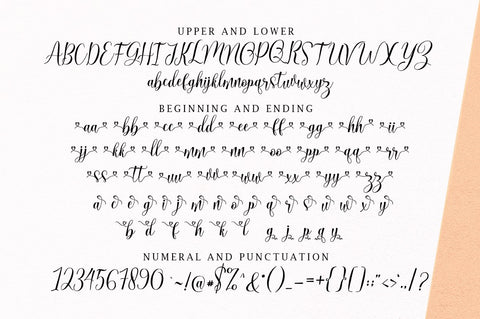 UPPER AND LOWER
ABCDEFGHIJKLMNOPQRSTUVWXYZ
abcdefghijklmnopqrstuvwxyz
BEGINNING AND ENDING
aa bb cc dd ee ff gg hh ii
jj kk ll mm nn oo pp qq rr
ss tt uu vv ww xx yy zz
b d f h k l g j p q y
NUMERAL AND PUNCTUATION
1234567890